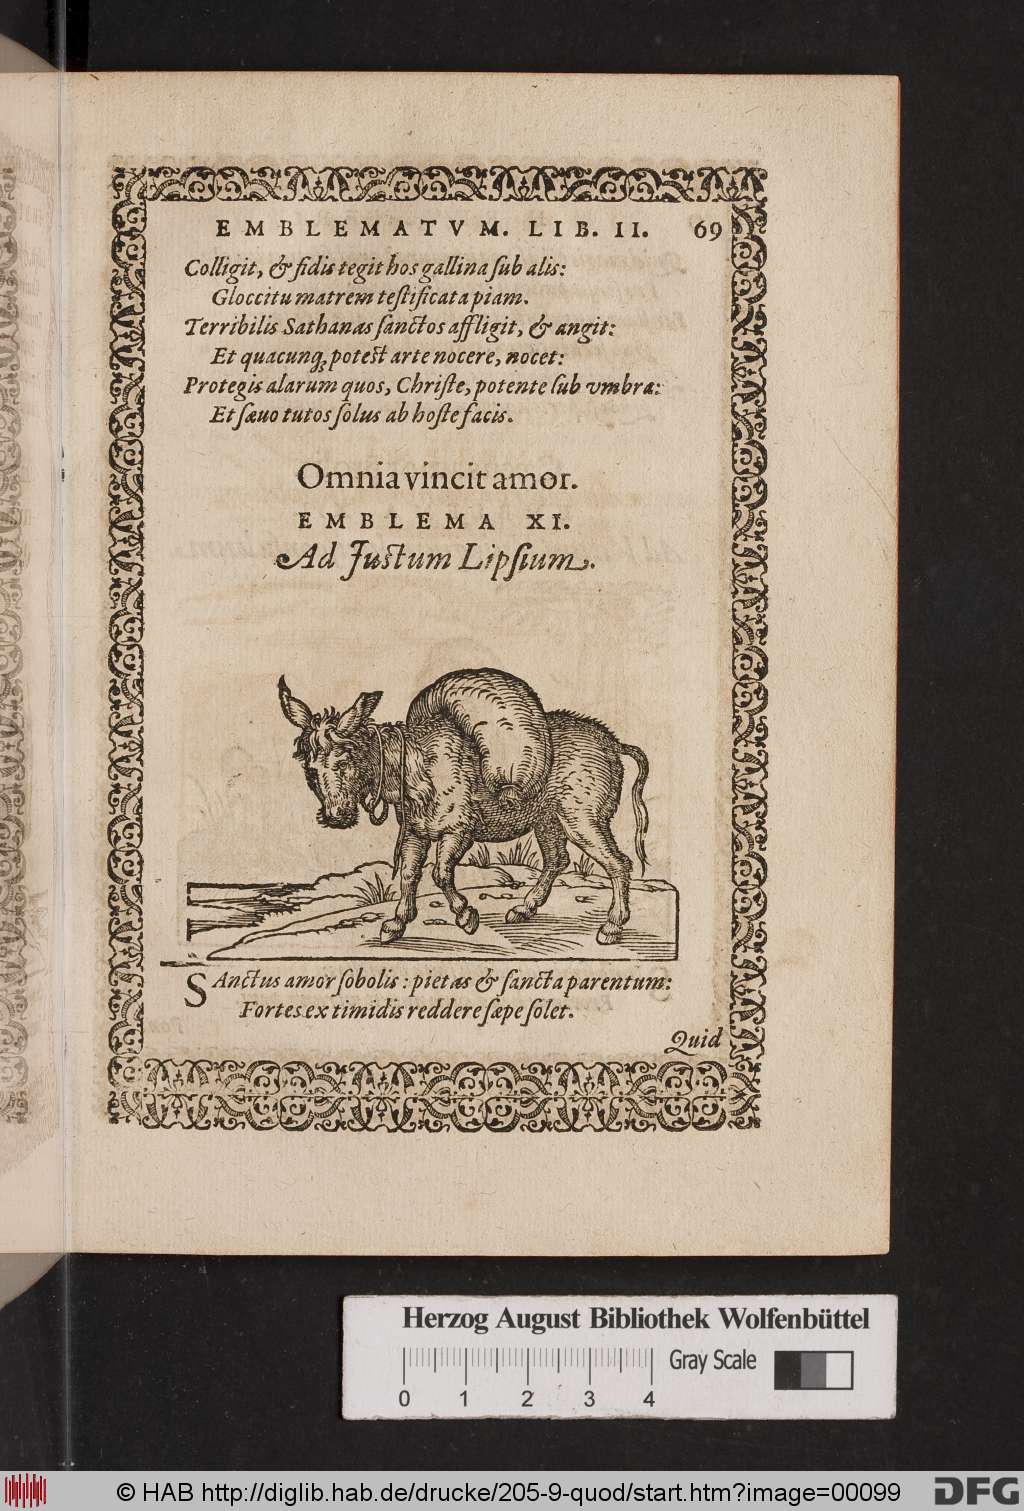 EMBLEMATVM. LIB. II. 69
Colligit, & fidis tegit hos gallina ſub alis:
Gloccitu matrem teſtificata piam.
Terribilis Sathanas ſanctos affligit, & angit:
Et quacunq; poteſt arte nocere, nocet:
Protegis alarum quos, Chriſte, potente ſub vmbra:
Et ſævo tutos ſolus ab hoſte facis.
Omnia vincit amor.
EMBLEMA XI.
Ad Juſtum Lipſium.
SAnctus amor ſobolis: pietas & ſancta parentum:
Fortes ex timidis reddere ſæpe ſolet.
Quid
Herzog August Bibliothek Wolfenbüttel
Gray Scale
0 1 2 3 4
© HAB http://diglib.hab.de/drucke/205-9-quod/start.htm?image=00099
DFG